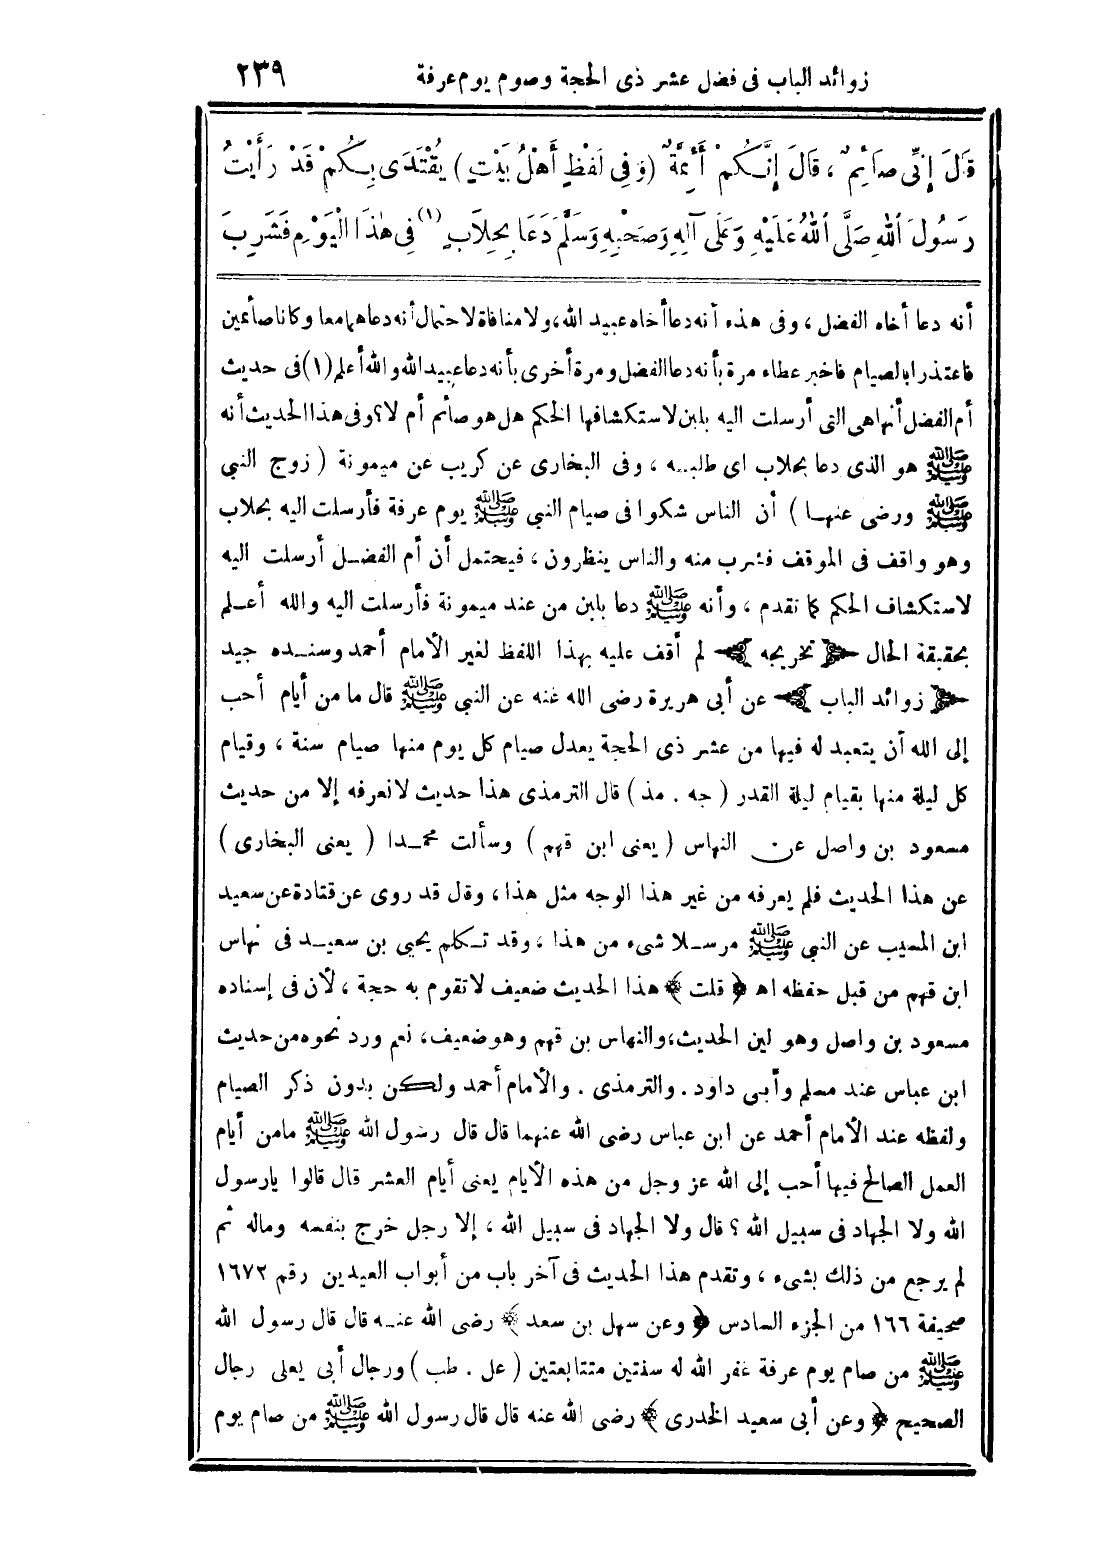 زوائد الباب فى فضل عشر ذى الحجة وصوم يوم عرفة ٢٣٩
قَالَ إِنِّى صَائِمٌ، قَالَ إِنَّكُمْ أَئِمَّةٌ (وَفِى لَفْظٍ أَهْلُ بَيْتٍ) يُقْتَدَى بِكُمْ قَدْ رَأَيْتُ
رَسُولَ اللهِ صَلَّى اللهُ عَلَيْهِ وَعَلَى آلِهِ وَصَحْبِهِ وَسَلَّمَ دَعَا بِحِلَابٍ (١) فِى هٰذَا الْيَوْمِ فَشَرِبَ
أنه دعا أخاه الفضل، وفى هذه أنه دعا أخاه عبيد الله، ولا منافاة لاحتمال أنه دعاهما معا وكانا صائمين
فاعتذرا بالصيام فاخبر عطاء مرة بأنه دعا الفضل ومرة أخرى بأنه دعا عبيد الله والله أعلم (١) فى حديث
أم الفضل أنها هى التى أرسلت اليه بلبن لاستكشافها الحكم هل هو صائم أم لا؟ وفى هذا الحديث أنه
ﷺ هو الذى دعا بحلاب اى طلبه، وفى البخارى عن كريب عن ميمونة (زوج النبي
ﷺ ورضى عنها) أن الناس شكوا فى صيام النبي ﷺ يوم عرفة فأرسلت اليه بحلاب
وهو واقف فى الموقف فشرب منه والناس ينظرون، فيحتمل أن أم الفضل أرسلت اليه
لاستكشاف الحكم كما تقدم، وأنه ﷺ دعا بلبن من عند ميمونة فأرسلت اليه والله أعلم
بحقيقة الحال ﴿تخريجه﴾ لم أقف عليه بهذا اللفظ لغير الأمام أحمد وسنده جيد
﴿زوائد الباب﴾ عن أبى هريرة رضى الله عنه عن النبي ﷺ قال ما من أيام أحب
إلى الله أن يتعبد له فيها من عشر ذى الحجة يعدل صيام كل يوم منها صيام سنة، وقيام
كل ليلة منها بقيام ليلة القدر (جه . مذ) قال الترمذى هذا حديث لانعرفه إلا من حديث
مسعود بن واصل عن النهاس (يعنى ابن قهم) وسألت محمدا (يعنى البخارى)
عن هذا الحديث فلم يعرفه من غير هذا الوجه مثل هذا، وقال قد روى عن قتادة عن سعيد
ابن المسيب عن النبي ﷺ مرسلا شىء من هذا، وقد تكلم يحيى بن سعيد فى نهاس
ابن قهم من قبل حفظه اه ﴿قلت﴾ هذا الحديث ضعيف لاتقوم به حجة، لأن فى إسناده
مسعود بن واصل وهو لين الحديث، والنهاس بن قهم وهو ضعيف، نعم ورد نحوه من حديث
ابن عباس عند مسلم وأبى داود . والترمذى . والأمام أحمد ولكن بدون ذكر الصيام
ولفظه عند الأمام أحمد عن ابن عباس رضى الله عنهما قال قال رسول الله ﷺ مامن أيام
العمل الصالح فيها أحب إلى الله عز وجل من هذه الأيام يعنى أيام العشر قال قالوا يارسول
الله ولا الجهاد فى سبيل الله؟ قال ولا الجهاد فى سبيل الله، إلا رجل خرج بنفسه وماله ثم
لم يرجع من ذلك بشىء، وتقدم هذا الحديث فى آخر باب من أبواب العيدين رقم ١٦٧٢
صحيفة ١٦٦ من الجزء السادس ﴿وعن سهل بن سعد﴾ رضى الله عنه قال قال رسول الله
ﷺ من صام يوم عرفة غفر الله له سنتين متتابعتين (عل . طب) ورجال أبى يعلى رجال
الصحيح ﴿وعن أبى سعيد الخدرى﴾ رضى الله عنه قال قال رسول الله ﷺ من صام يوم